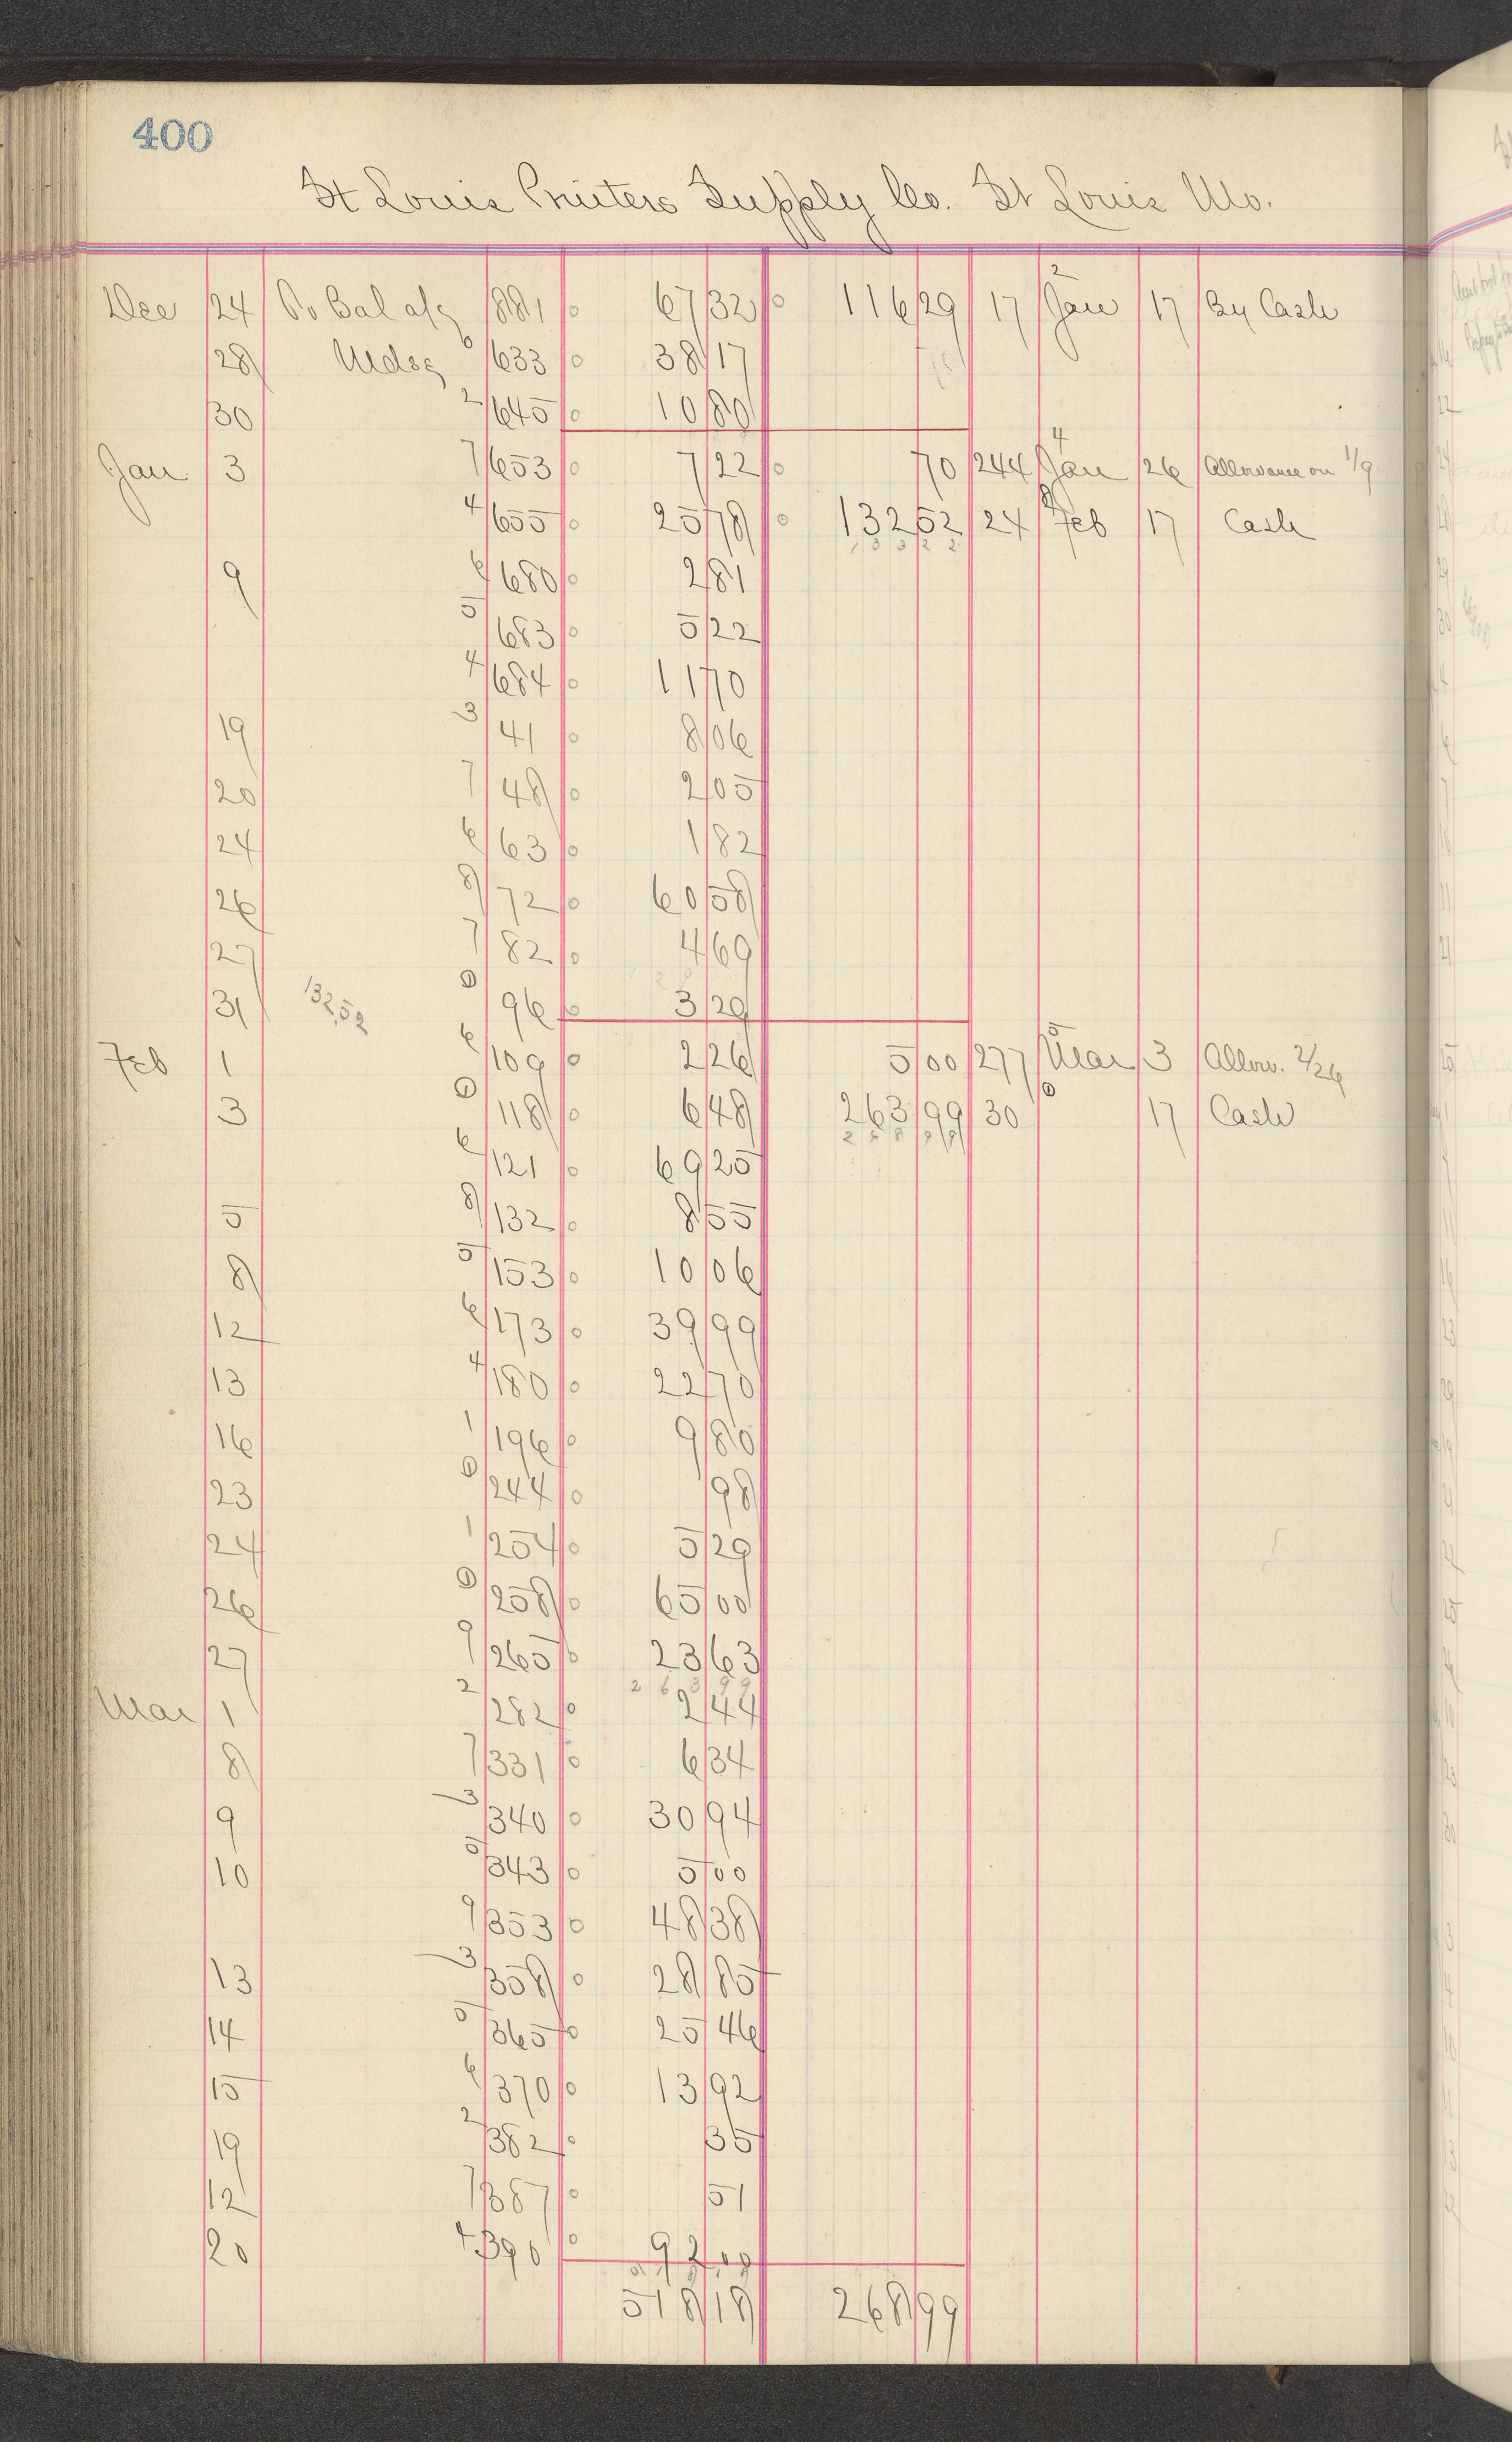 400
St Louis Printers Supply Co. St Louis Mo.
Dec 24 To Bal a/c 881 67 32 116 29 17 Jan 2 17 By Cash
28 Mdse 6 633 38 17
30 2 645 10 80
Jan 3 7 653 7 22 70 244 Jan 4 26 Allowance on 1/9
4 655 25 78 132 52 24 Feb 8 17 Cash
13322
9 6 680 2 81
5 683 5 22
4 684 11 70
19 3 41 8 06
20 7 48 2 05
24 6 63 1 82
26 8 72 60 58
27 7 82 4 69
31 132,52 0 96 3 29
Feb 1 6 109 2 26 5 00 277 Mar 5 3 Allow. 2/26
3 0 118 6 48 263 99 30 0 17 Cash
26899
6 121 69 25
5 8 132 8 55
8 5 153 10 06
12 6 173 39 99
13 4 180 22 70
16 1 196 9 80
23 0 244 98
24 1 254 5 29
26 0 258 65 00
27 9 265 23 63
26399
Mar 1 2 282 2 44
8 7 331 6 34
9 3 340 30 94
10 5 343 5 00
9 353 48 38
13 3 358 28 85
14 5 365 25 46
15 6 370 13 92
19 2 382 35
12 7 387 51
20 4 390 92 00
518 18 268 99